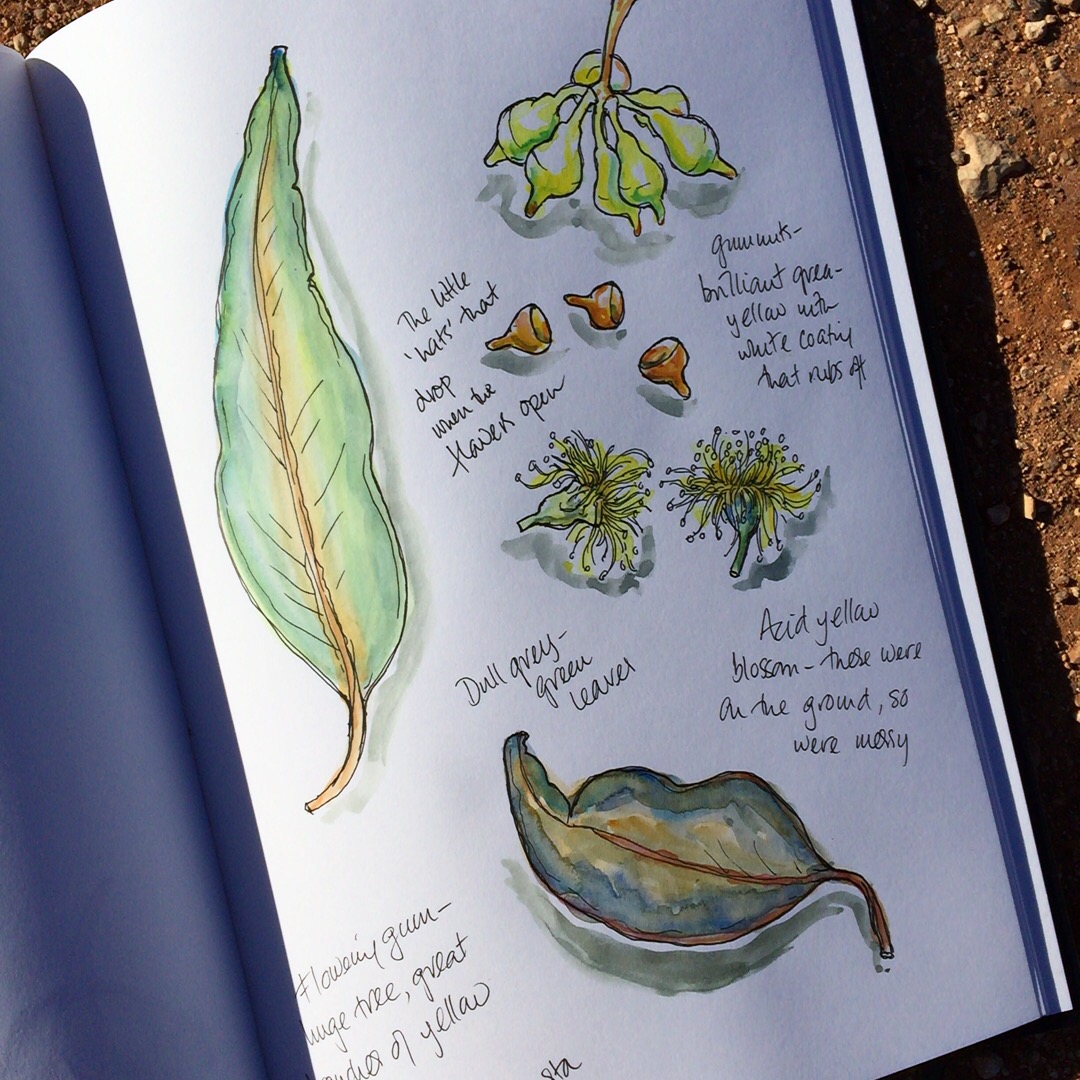 gumnuts-
brilliant green-
yellow with
white coating
that rubs off
The little
'hats' that
drop
when the
flowers open
Dull grey-
green
leaves
Acid yellow
blossom - these were
on the ground, so
were messy
Flowering gum -
huge tree, great
of yellow